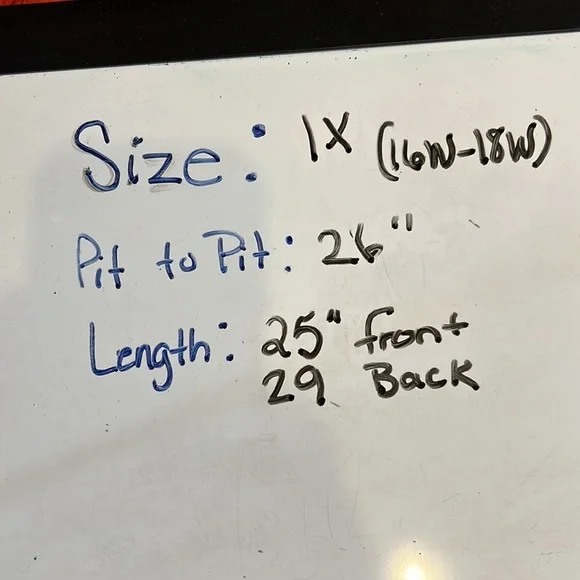 Size: 1X (16W-18W)
Pit to Pit: 26"
Length: 25" front
29 Back